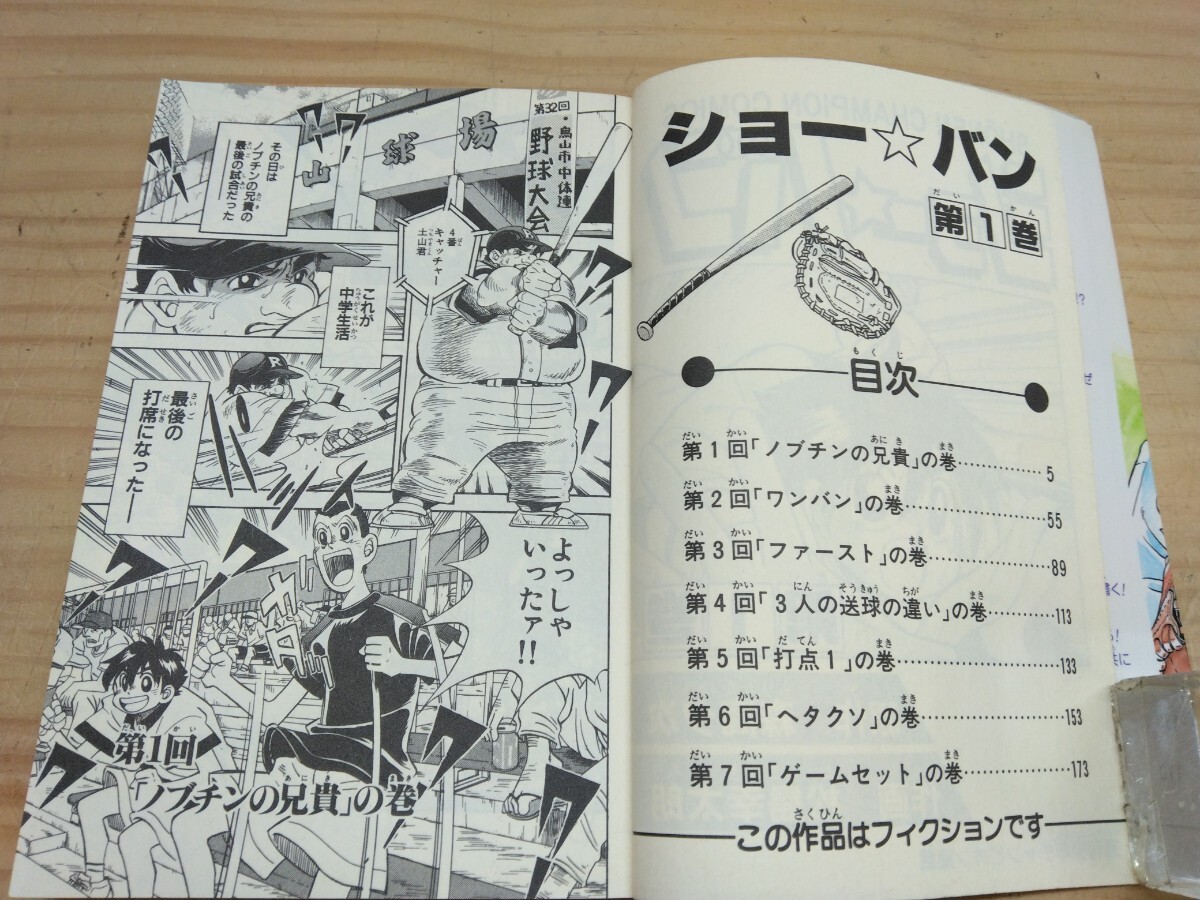 ショー☆バン
第1巻
目次
第1回「ノブチンの兄貴」の巻……………5
第2回「ワンバン」の巻……………55
第3回「ファースト」の巻……………89
第4回「3人の送球の違い」の巻……………113
第5回「打点1」の巻……………133
第6回「ヘタクソ」の巻……………153
第7回「ゲームセット」の巻……………173
この作品はフィクションです
山球場
第32回・鳥山市中体連
野球大会
その日は
ノブチンの兄貴の
最後の試合だった
4番
キャッチャー
土山君
これが
中学生活
最後の
打席になった──
よっしゃ
いったァ!!
ワアアアア
第1回
「ノブチンの兄貴」の巻